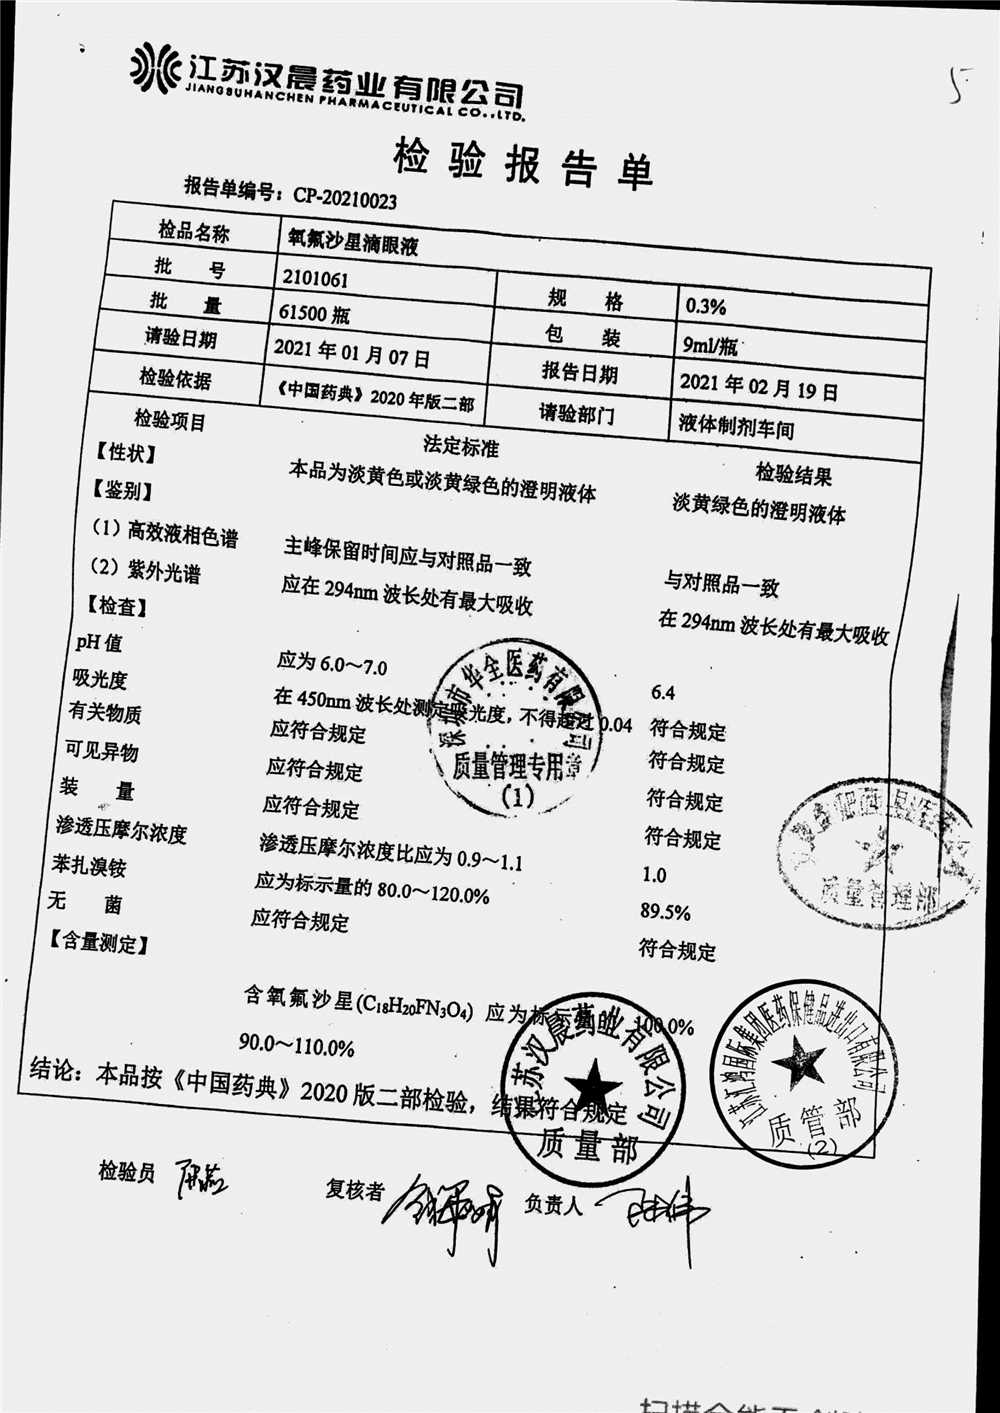 江苏汉晨药业有限公司
JIANGSUHANCHEN PHARMACEUTICAL CO.,LTD.
5
检验报告单
报告单编号：CP-20210023
检品名称 氧氟沙星滴眼液
批 号 2101061 规 格 0.3%
批 量 61500 瓶 包 装 9ml/瓶
请验日期 2021 年 01 月 07 日 报告日期 2021 年 02 月 19 日
检验依据 《中国药典》2020 年版二部 请验部门 液体制剂车间
检验项目 法定标准 检验结果
【性状】 本品为淡黄色或淡黄绿色的澄明液体 淡黄绿色的澄明液体
【鉴别】
（1）高效液相色谱 主峰保留时间应与对照品一致 与对照品一致
（2）紫外光谱 应在 294nm 波长处有最大吸收 在 294nm 波长处有最大吸收
【检查】
pH 值 应为 6.0～7.0 6.4
吸光度 在 450nm 波长处测定吸光度，不得超过 0.04 符合规定
有关物质 应符合规定 符合规定
可见异物 应符合规定 符合规定
装 量 应符合规定 符合规定
渗透压摩尔浓度 渗透压摩尔浓度比应为 0.9～1.1 1.0
苯扎溴铵 应为标示量的 80.0～120.0% 89.5%
无 菌 应符合规定 符合规定
【含量测定】
含氧氟沙星(C₁₈H₂₀FN₃O₄) 应为标示量的 100.0%
90.0～110.0%
结论：本品按《中国药典》2020 版二部检验，结果符合规定
深圳市华全医药有限公司
质量管理专用章
(1)
质量管理部
江苏汉晨药业有限公司
质量部
江苏汇鸿国际集团医药保健品进出口有限公司
质管部
(2)
检验员 复核者 负责人